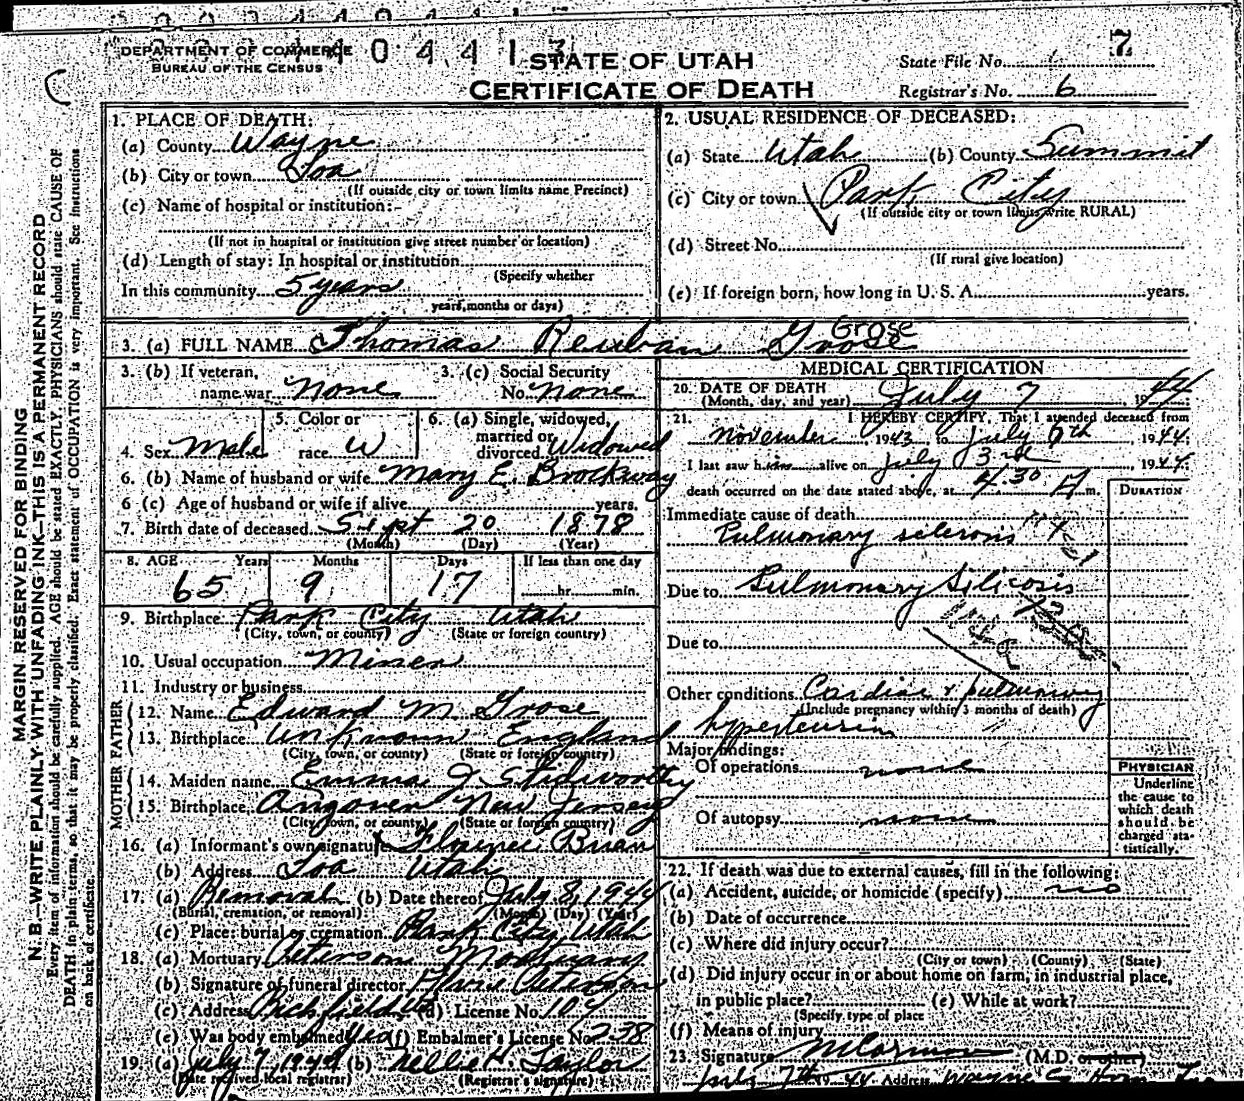 DEPARTMENT OF COMMERCE
BUREAU OF THE CENSUS
STATE OF UTAH
CERTIFICATE OF DEATH
State File No. 7
Registrar's No. 6
MARGIN RESERVED FOR BINDING
N. B.—WRITE PLAINLY WITH UNFADING INK—THIS IS A PERMANENT RECORD
Every item of information should be carefully supplied. AGE should be stated EXACTLY. PHYSICIANS should state CAUSE OF
DEATH in plain terms, so that it may be properly classified. Exact statement of OCCUPATION is very important. See instructions
on back of certificate.
1. PLACE OF DEATH:
(a) County Wayne
(b) City or town Loa
(If outside city or town limits name Precinct)
(c) Name of hospital or institution:-
(If not in hospital or institution give street number or location)
(d) Length of stay: In hospital or institution
(Specify whether
In this community 5 years
years, months or days)
2. USUAL RESIDENCE OF DECEASED:
(a) State Utah (b) County Summit
(c) City or town Park City
(If outside city or town limits write RURAL)
(d) Street No.
(If rural give location)
(e) If foreign born, how long in U. S. A. years.
3. (a) FULL NAME Thomas Reuban Grose
Grose
3. (b) If veteran, name war None
3. (c) Social Security No. None
4. Sex Male
5. Color or race W
6. (a) Single, widowed, married or divorced Widowed
6. (b) Name of husband or wife Mary E. Brockway
6 (c) Age of husband or wife if alive years.
7. Birth date of deceased Sept 20 1878
(Month) (Day) (Year)
8. AGE Years Months Days If less than one day
65 9 17 hr. min.
9. Birthplace Park City Utah
(City, town, or county) (State or foreign country)
10. Usual occupation Miner
11. Industry or business
FATHER
12. Name Edward M. Grose
13. Birthplace Unknown England
(City, town, or county) (State or foreign country)
MOTHER
14. Maiden name Emma J
15. Birthplace New Jersey
(City, town, or county) (State or foreign country)
16. (a) Informant's own signature Florence Brian
(b) Address Loa Utah
17. (a) Removal (b) Date thereof July 8, 1944
(Burial, cremation, or removal) (Month) (Day) (Year)
(c) Place: burial or cremation Park City, Utah
18. (a) Mortuary Peterson Mortuary
(b) Signature of funeral director Peterson
(c) Address Richfield (d) License No. 107
(e) Was body embalmed Yes (f) Embalmer's License No. 238
19. (a) July 7, 1944 (b) Nellie H. Taylor
(Date received local registrar) (Registrar's signature)
MEDICAL CERTIFICATION
20. DATE OF DEATH July 7 1944
(Month, day, and year)
21. I HEREBY CERTIFY, That I attended deceased from
November 1943 to July 6th 1944
I last saw him alive on July 3rd 1944
death occurred on the date stated above, at 4:30 A m.
DURATION
Immediate cause of death
Pulmonary sclerosis
Due to Pulmonary Silicosis
Due to
Other conditions Cardiac & pulmonary
(Include pregnancy within 3 months of death)
hypertension
Major findings:
Of operations none
Of autopsy none
PHYSICIAN
Underline
the cause to
which death
should be
charged sta-
tistically.
22. If death was due to external causes, fill in the following:
(a) Accident, suicide, or homicide (specify) no
(b) Date of occurrence
(c) Where did injury occur?
(City or town) (County) (State)
(d) Did injury occur in or about home on farm, in industrial place,
in public place? (e) While at work?
(Specify type of place
(f) Means of injury
23. Signature (M.D. or other)
July 7th 1944 Address Wayne